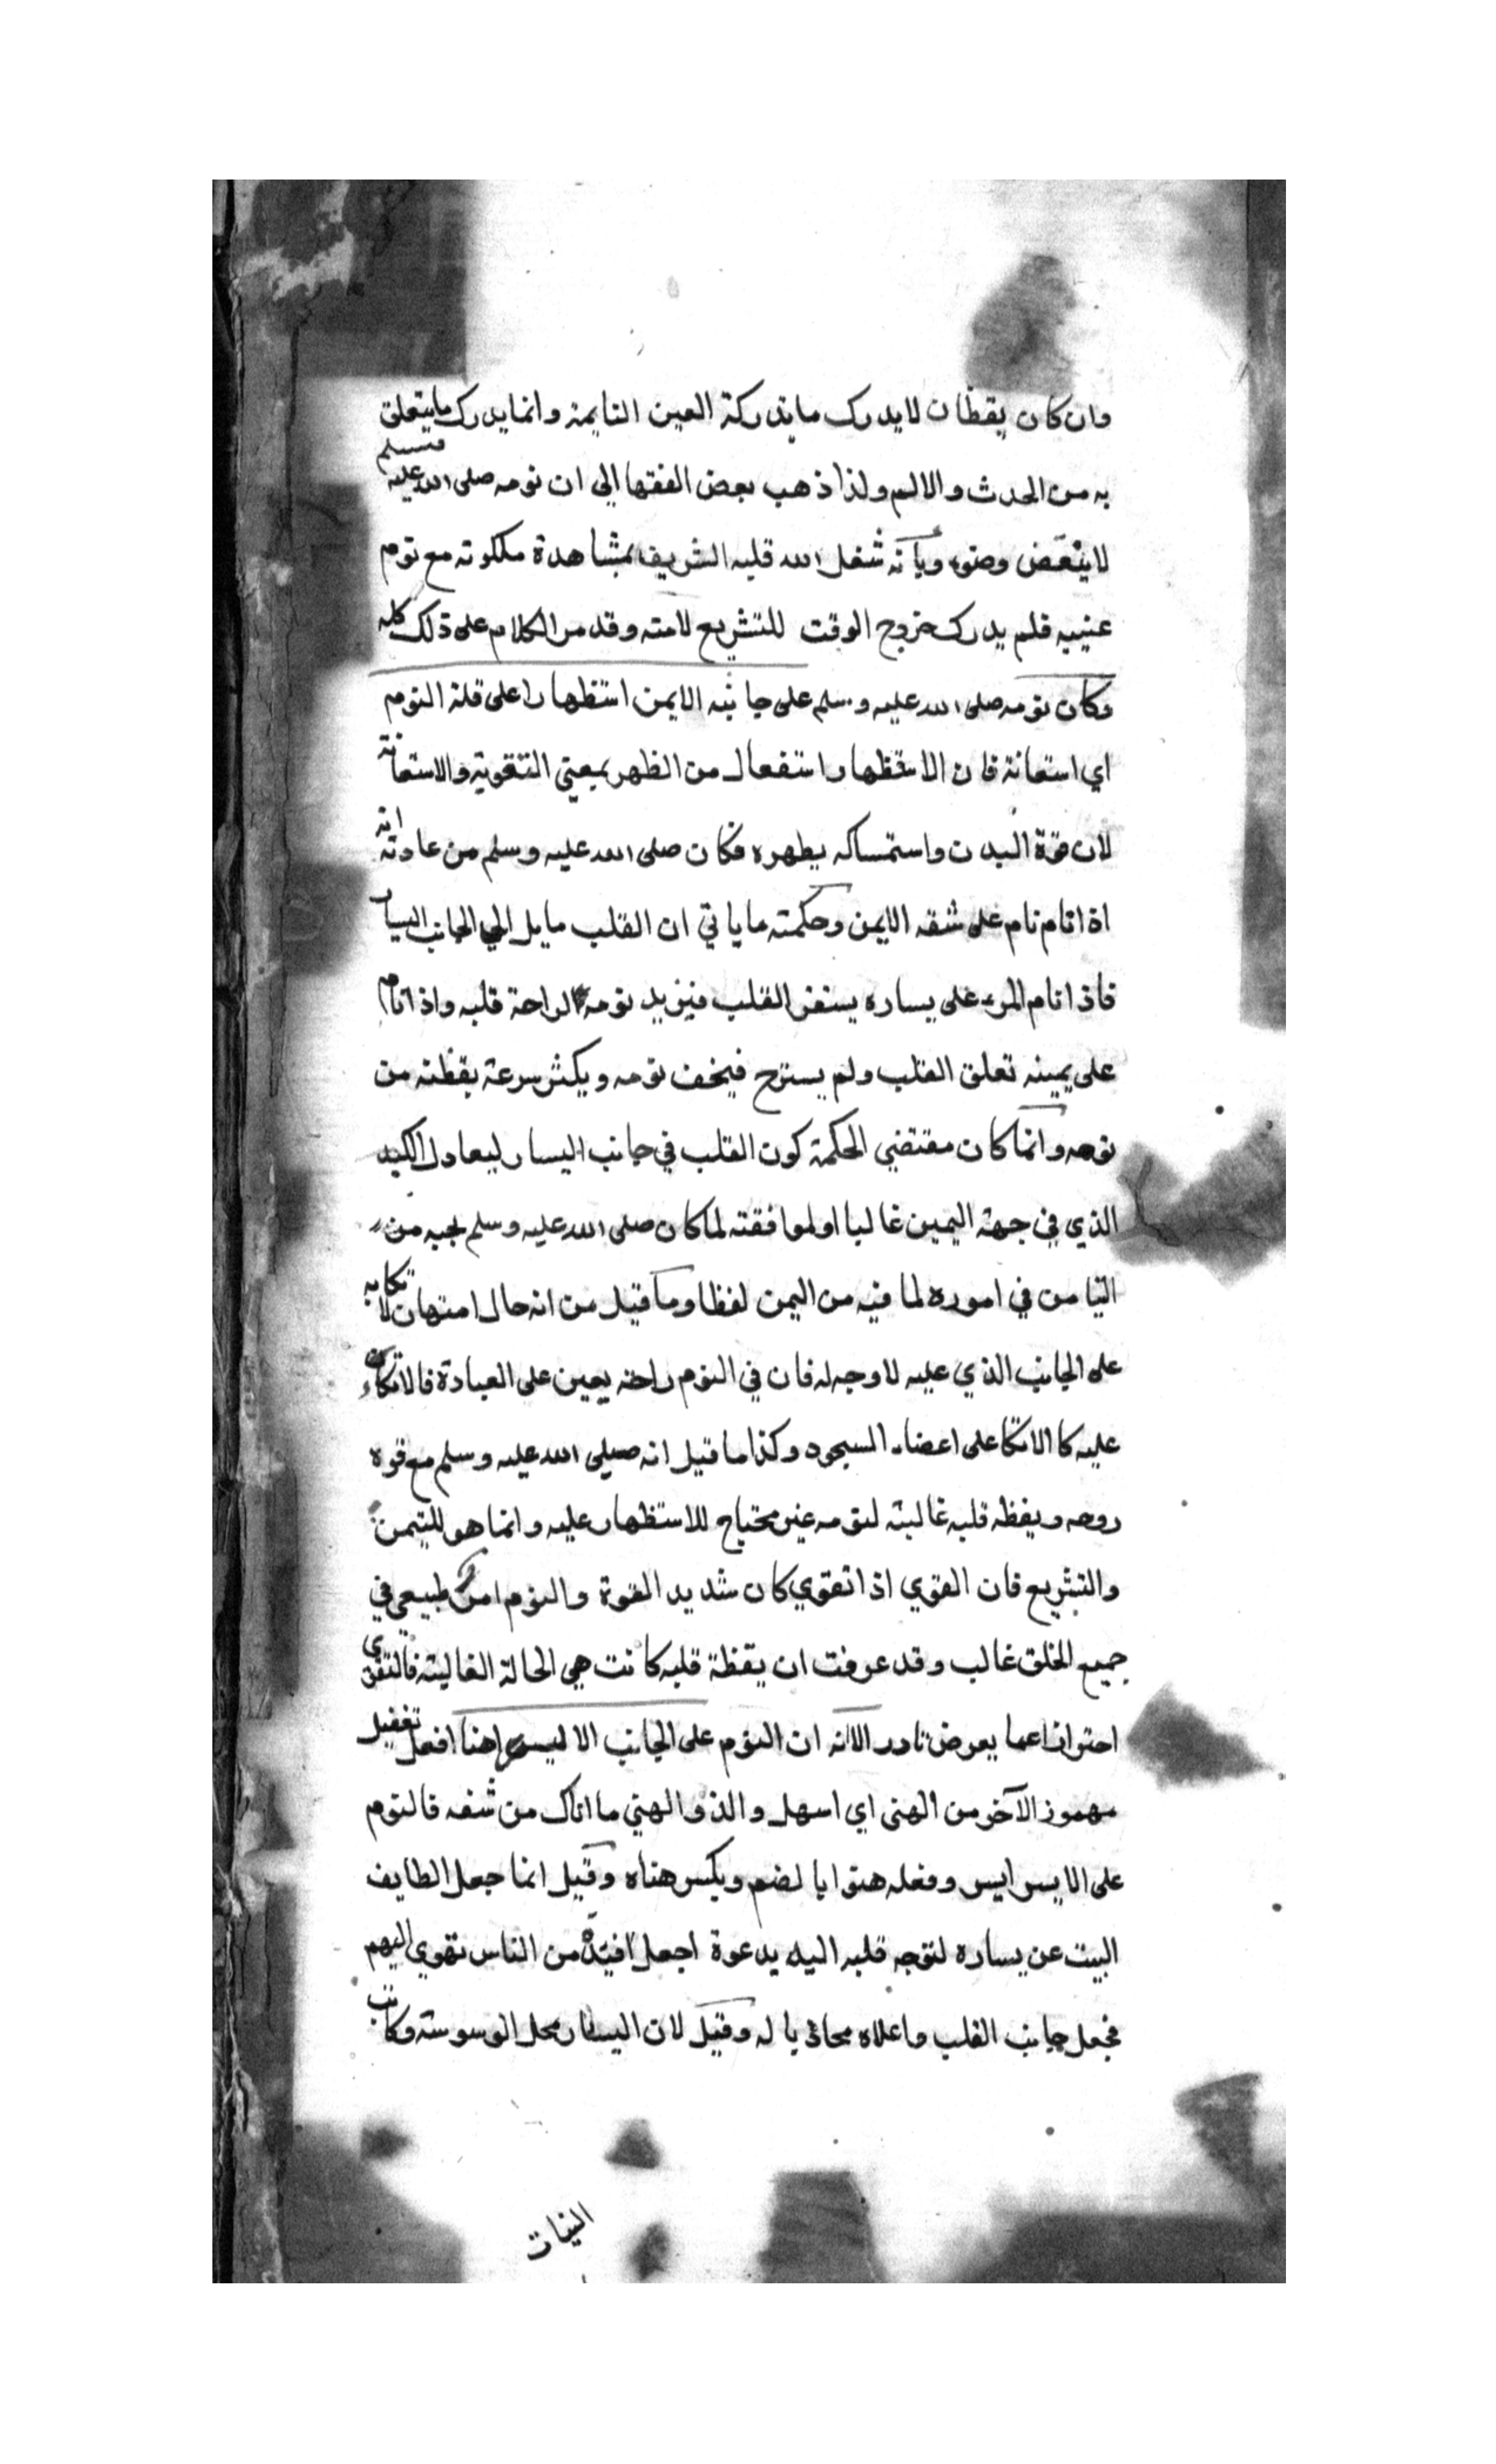 وان كان يقظان لا يدرك ما تدركه العين النايمة وانما يدرك ما يتعلق
به من الحدث والالم ولذا ذهب بعض الفقها الى ان نومه صلى الله عليه وسلم
لا ينقض وضوء وبانه شغل الله قلبه الشريف بمشاهدة ملكوته مع نوم
عينيه فلم يدرك خروج الوقت للتشريع لامته وقد مر الكلام على ذلك كله
وكان نومه صلى الله عليه وسلم على جانبه الايمن استظهارا على قلة النوم
اي استعانة فان الاستظهار استفعال من الظهر بمعنى التقوية والاستعانة
لان قوة البدن واستمساكه بظهره فكان صلى الله عليه وسلم من عادته انه
اذا نام نام على شقه الايمن وحكمته ما ياتي ان القلب مايل الى الجانب اليسار
فاذا نام المرء على يساره يستغرق القلب فيزيد نومه لراحة قلبه واذا نام
على يمينه تعلق القلب ولم يسترح فيخف نومه ويكثر سرعة يقظته من
نومه وانما كان مقتضي الحكمة كون القلب في جانب اليسار ليعادل الكبد
الذي في جهة اليمين غالبا او لموافقته لما كان صلى الله عليه وسلم يحبه من
التيامن في اموره لما فيه من اليمن لفظا وما قيل من انه حال امتهان لا تكايه
على الجانب الذي عليه لا وجه له فان في النوم راحة يعين على العبادة فالاتكاء
عليه كالاتكا على اعضاء السجود وكذا ما قيل انه صلى الله عليه وسلم مع قوة
روحه ويقظة قلبه غالبته لنومه غير محتاج للاستظهار عليه وانما هو للتيمن
والتشريع فان القوي اذا تقوي كان شديد القوة والنوم امر طبيعي في
جميع الخلق غالب وقد عرفت ان يقظة قلبه كانت هي الحالة الغالبة فالتقوي
احترازا عما يعرض نادرا لانه ان النوم على الجانب الايسر اهنا افعل تفضيل
مهموز الآخر من الهنى اي اسهل والذ والهني ما اتاك من شقه فالنوم
على الايسر ايسر وفعله هنوا بالضم ويكسر هناه وقيل انما جعل الطايف
البيت عن يساره لتوجه قلبه اليه بدعوة اجعل افئدة من الناس تهوي اليهم
فجعل جانب القلب واعلاه محاذيا له وقيل لان اليسار محل الوسوسة وكاتب